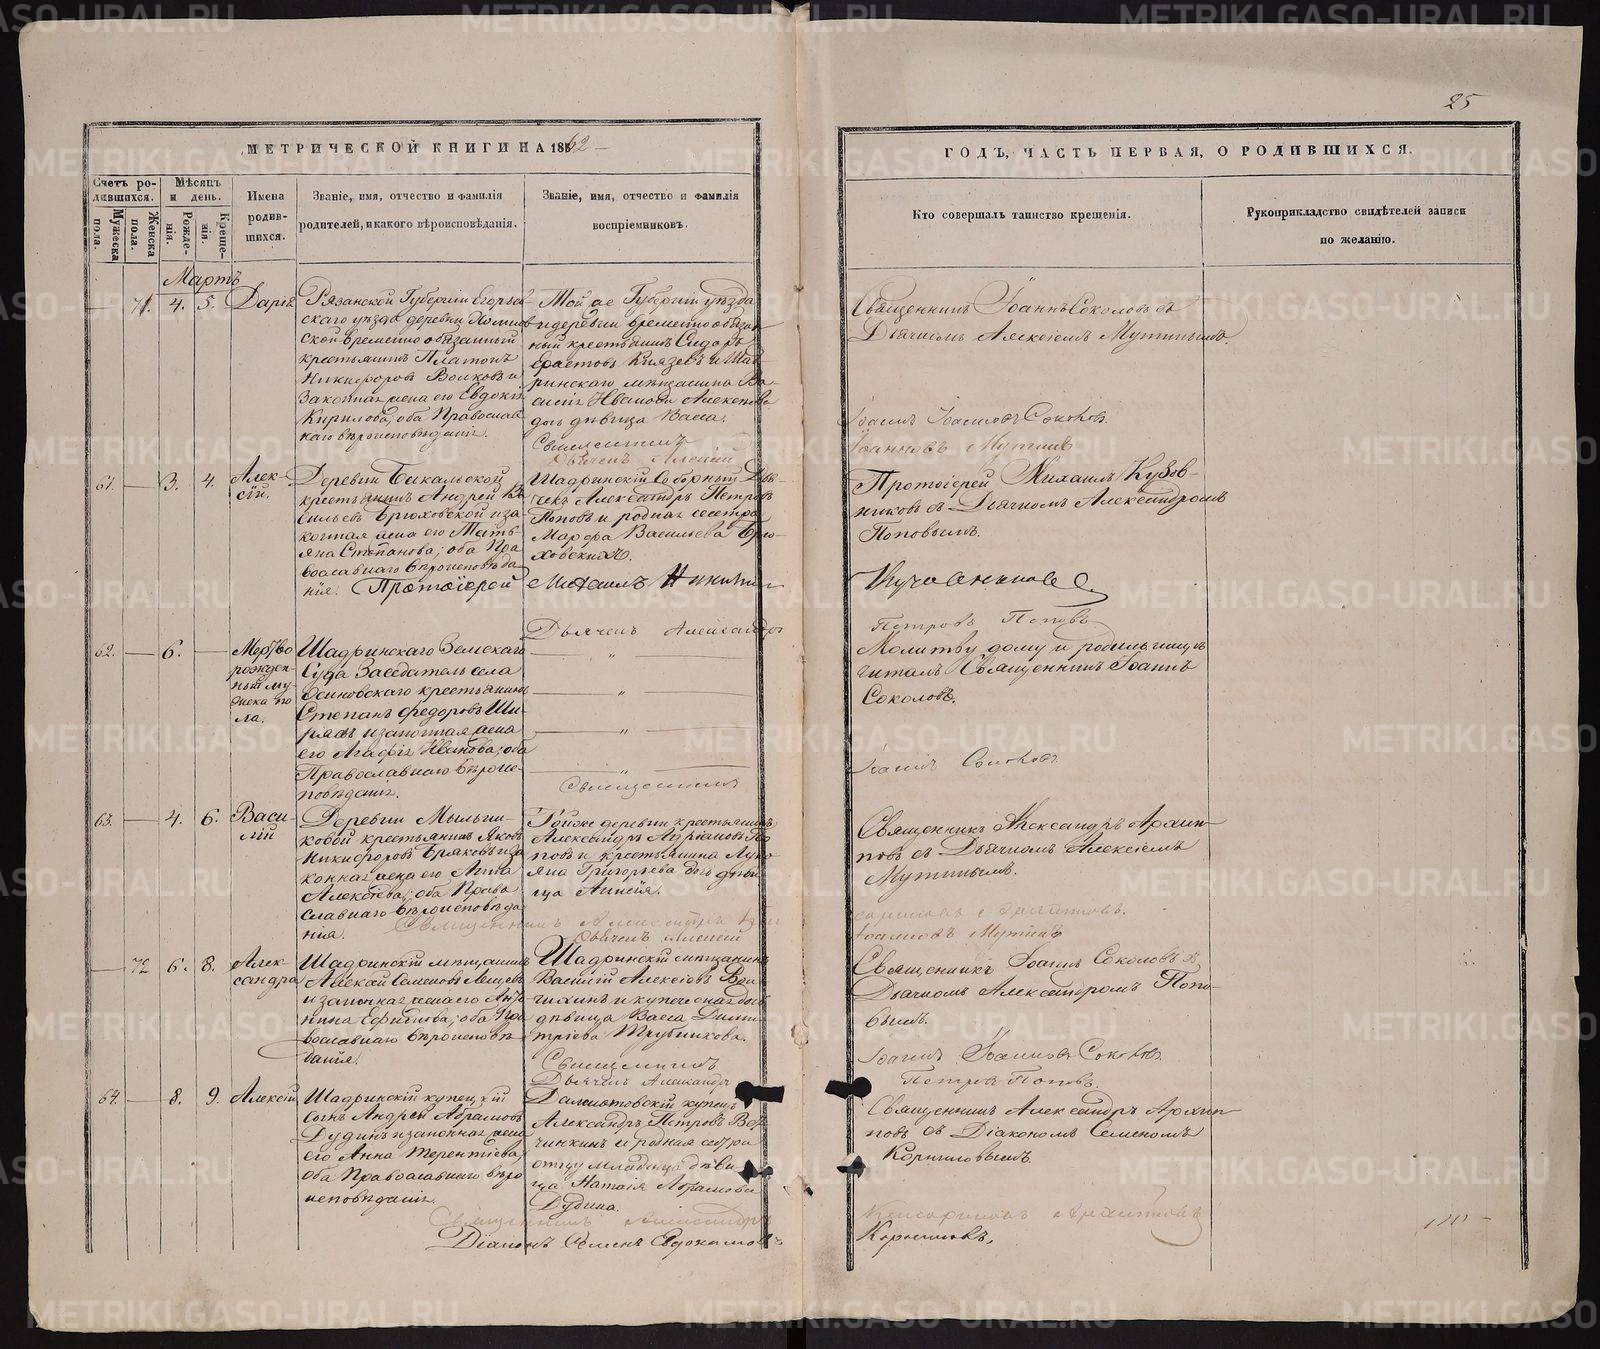 25
МЕТРИЧЕСКОЙ КНИГИ НА 1862
ГОДЪ, ЧАСТЬ ПЕРВАЯ, О РОДИВШИХСЯ.
Счетъ ро-
дившихся.
Мужеска
пола.
Женска
пола.
Мѣсяцъ
и день.
Рожде-
нія.
Креще-
нія.
Имена
родив-
шихся.
Званіе, имя, отчество и фамилія
родителей, и какого вѣроисповѣданія.
Званіе, имя, отчество и фамилія
воспріемниковъ.
Кто совершалъ таинство крещенія.
Рукоприкладство свидѣтелей записи
по желанію.
Мартъ
71. 4. 5. Дарія
Рязанской Губерніи Егорьев-
скаго уѣзда деревни
ской временно обязанный
крестьянинъ Платонъ
Никифоровъ Волковъ и
законная жена его Евдокія
Кирилова, оба Православ-
наго вѣроисповѣданія.
Той же Губерніи уѣзда
и деревни временнообязан-
ный крестьянинъ Сидоръ
Ерастовъ Князевъ и Шад-
ринскаго мѣщанина Ва-
силія Иванова
дочь дѣвица Васса.
Священникъ
Дьячекъ Алексій
Священникъ Іоаннъ Соколовъ съ
Дьячкомъ Алексіемъ Мутинымъ.
Іоаннъ Іоанновъ Соколовъ.
Іоанновъ Мутинъ
61. 3. 4. Алек-
сій.
Деревни Бакальской
крестьянинъ Андрей Ва-
сильевъ Брюховской и за-
конная жена его Тать-
яна Степанова; оба Пра-
вославнаго вѣроисповѣда-
нія. Протоіерей
Шадринскій Соборный Дья-
чекъ Александръ Петровъ
Поповъ и родная сестра
Марфа Васильева Брю-
ховскихъ.
Михаилъ Никитин
Дьячекъ Александръ
Протоіерей Михаилъ
никовъ съ Дьячкомъ Александромъ
Поповымъ.
Петровъ Поповъ
62. 6. Мертво
рожден-
ный му-
жеска по
ла.
Шадринскаго Земскаго
Суда Заседатель села
Осиновскаго крестьянинъ
Степанъ Федоровъ Ши-
ряевъ и законная жена
его Агафія Иванова; оба
Православнаго вѣроис-
повѣданія.
Священникъ
Молитву дому и родильницѣ
читалъ Священникъ Іоаннъ
Соколовъ.
Іоаннъ Соколовъ
63. 4. 6. Васи-
лій
Деревни Мыльни-
ковой крестьянинъ Яковъ
Никифоровъ Бряковъ и за-
конная жена его Анна
Алексѣева; оба Право-
славнаго вѣроисповѣда-
нія. Священникъ Александръ
Дьячекъ Алексій
Той же деревни крестьянинъ
Александръ Адріановъ По-
повъ и крестьянина Лукі-
яна Григорьева дочь дѣви-
ца Анисія.
Священникъ Александръ Архип-
повъ съ Дьячкомъ Алексіемъ
Мутинымъ.
Іоанновъ Мутинъ
72 6. 8. Алек-
сандра
Шадринскій мѣщанинъ
Алексѣй Семеновъ
и законная жена его Анто-
нина Ефимова; оба Пра-
вославнаго вѣроисповѣ-
данія.
Шадринскій мѣщанинъ
Василій Алексіевъ
и купеческая дочь
дѣвица Васса Дими-
тріева Трубникова.
Священникъ
Дьячекъ Александръ
Священникъ Іоаннъ Соколовъ съ
Дьячкомъ Александромъ Попо-
вымъ.
Іоаннъ Іоанновъ Соколовъ
Петровъ Поповъ.
64. 8. 9. Алексій
Шадринскій купеческій
сынъ Андрей Абрамовъ
Дудинъ и законная жена
его Анна Терентіева,
оба Православнаго вѣро
исповѣданія.
Священникъ Александръ
Діаконъ Семенъ Евдокимовъ
Далматовскій купецъ
Александръ Петровъ
и родная сестра
отцу младенца дѣви-
ца Наталія Абрамова
Дудина.
Священникъ Александръ Архип-
повъ съ Діакономъ Семеномъ
Корниловымъ.
Корниловъ.
METRIKI.GASO-URAL.RU